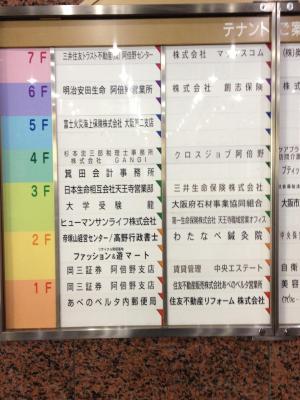 テナント ご案
7F 三井住友トラスト不動産(株)阿倍野センター 株式会社 マックスコム
6F 明治安田生命 阿倍野営業所 株式会社 創志保険
5F 富士火災海上保険株式会社 大阪第二支店
4F 杉本宏三郎税理士事務所 株式会社 GANGI クロスジョブ阿倍野
箕田会計事務所
3F 日本生命相互会社天王寺営業部 三井生命保険株式会社
大学受験 龍 大阪府石材事業協同組合
ヒューマンサンライフ株式会社 第一生命保険株式会社 天王寺職域営業オフィス
2F 帝塚山経営センター/高野行政書士 わたなべ鍼灸院
ファッション&遊マート
岡三証券 阿倍野支店 賃貸管理 中央エステート
1F 岡三証券 阿倍野支店 住友不動産販売株式会社あべのベルタ営業所
あべのベルタ内郵便局 住友不動産リフォーム 株式会社